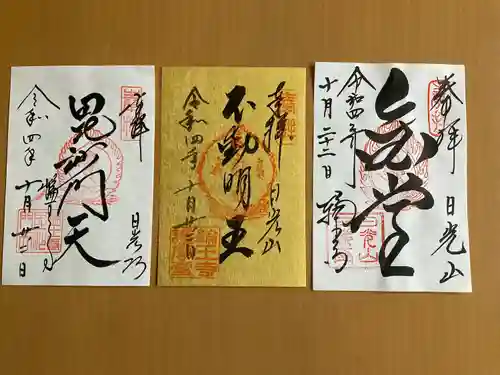 奉拝
日光山
毘沙門天
令和四年
十月廿二日
奉拝
日光山
不動明王
令和四年十月廿二日
輪王寺
奉拝
日光山
令和四年
十月二十二日
輪王寺